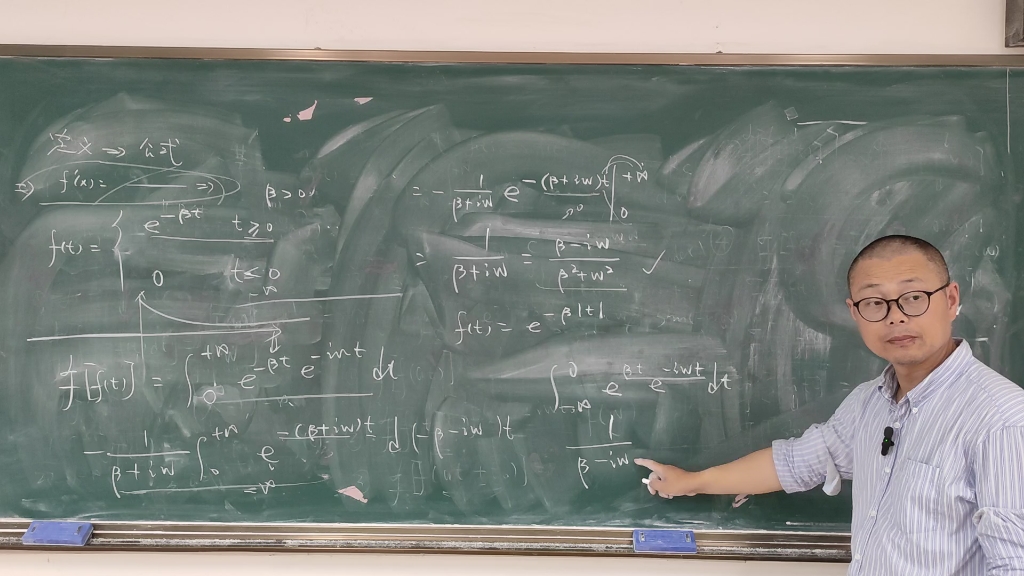 定义 ⇒ 公式
⇒ f'(x) = —— ⇒
β > 0
f(t) = { e^{-βt}   t ≥ 0
0   t ≤ 0
F[f(t)] = ∫_0^{+∞} e^{-βt} e^{-iwt} dt
- 1/(β+iw) ∫_0^{+∞} e^{-(β+iw)t} d(-β-iw)t
= - 1/(β+iw) e^{-(β+iw)t} |_0^{+∞}
= 1/(β+iw) = (β-iw)/(β²+w²) ✓
f(t) = e^{-β|t|}
∫_{-∞}^0 e^{βt} e^{-iwt} dt
1/(β-iw)